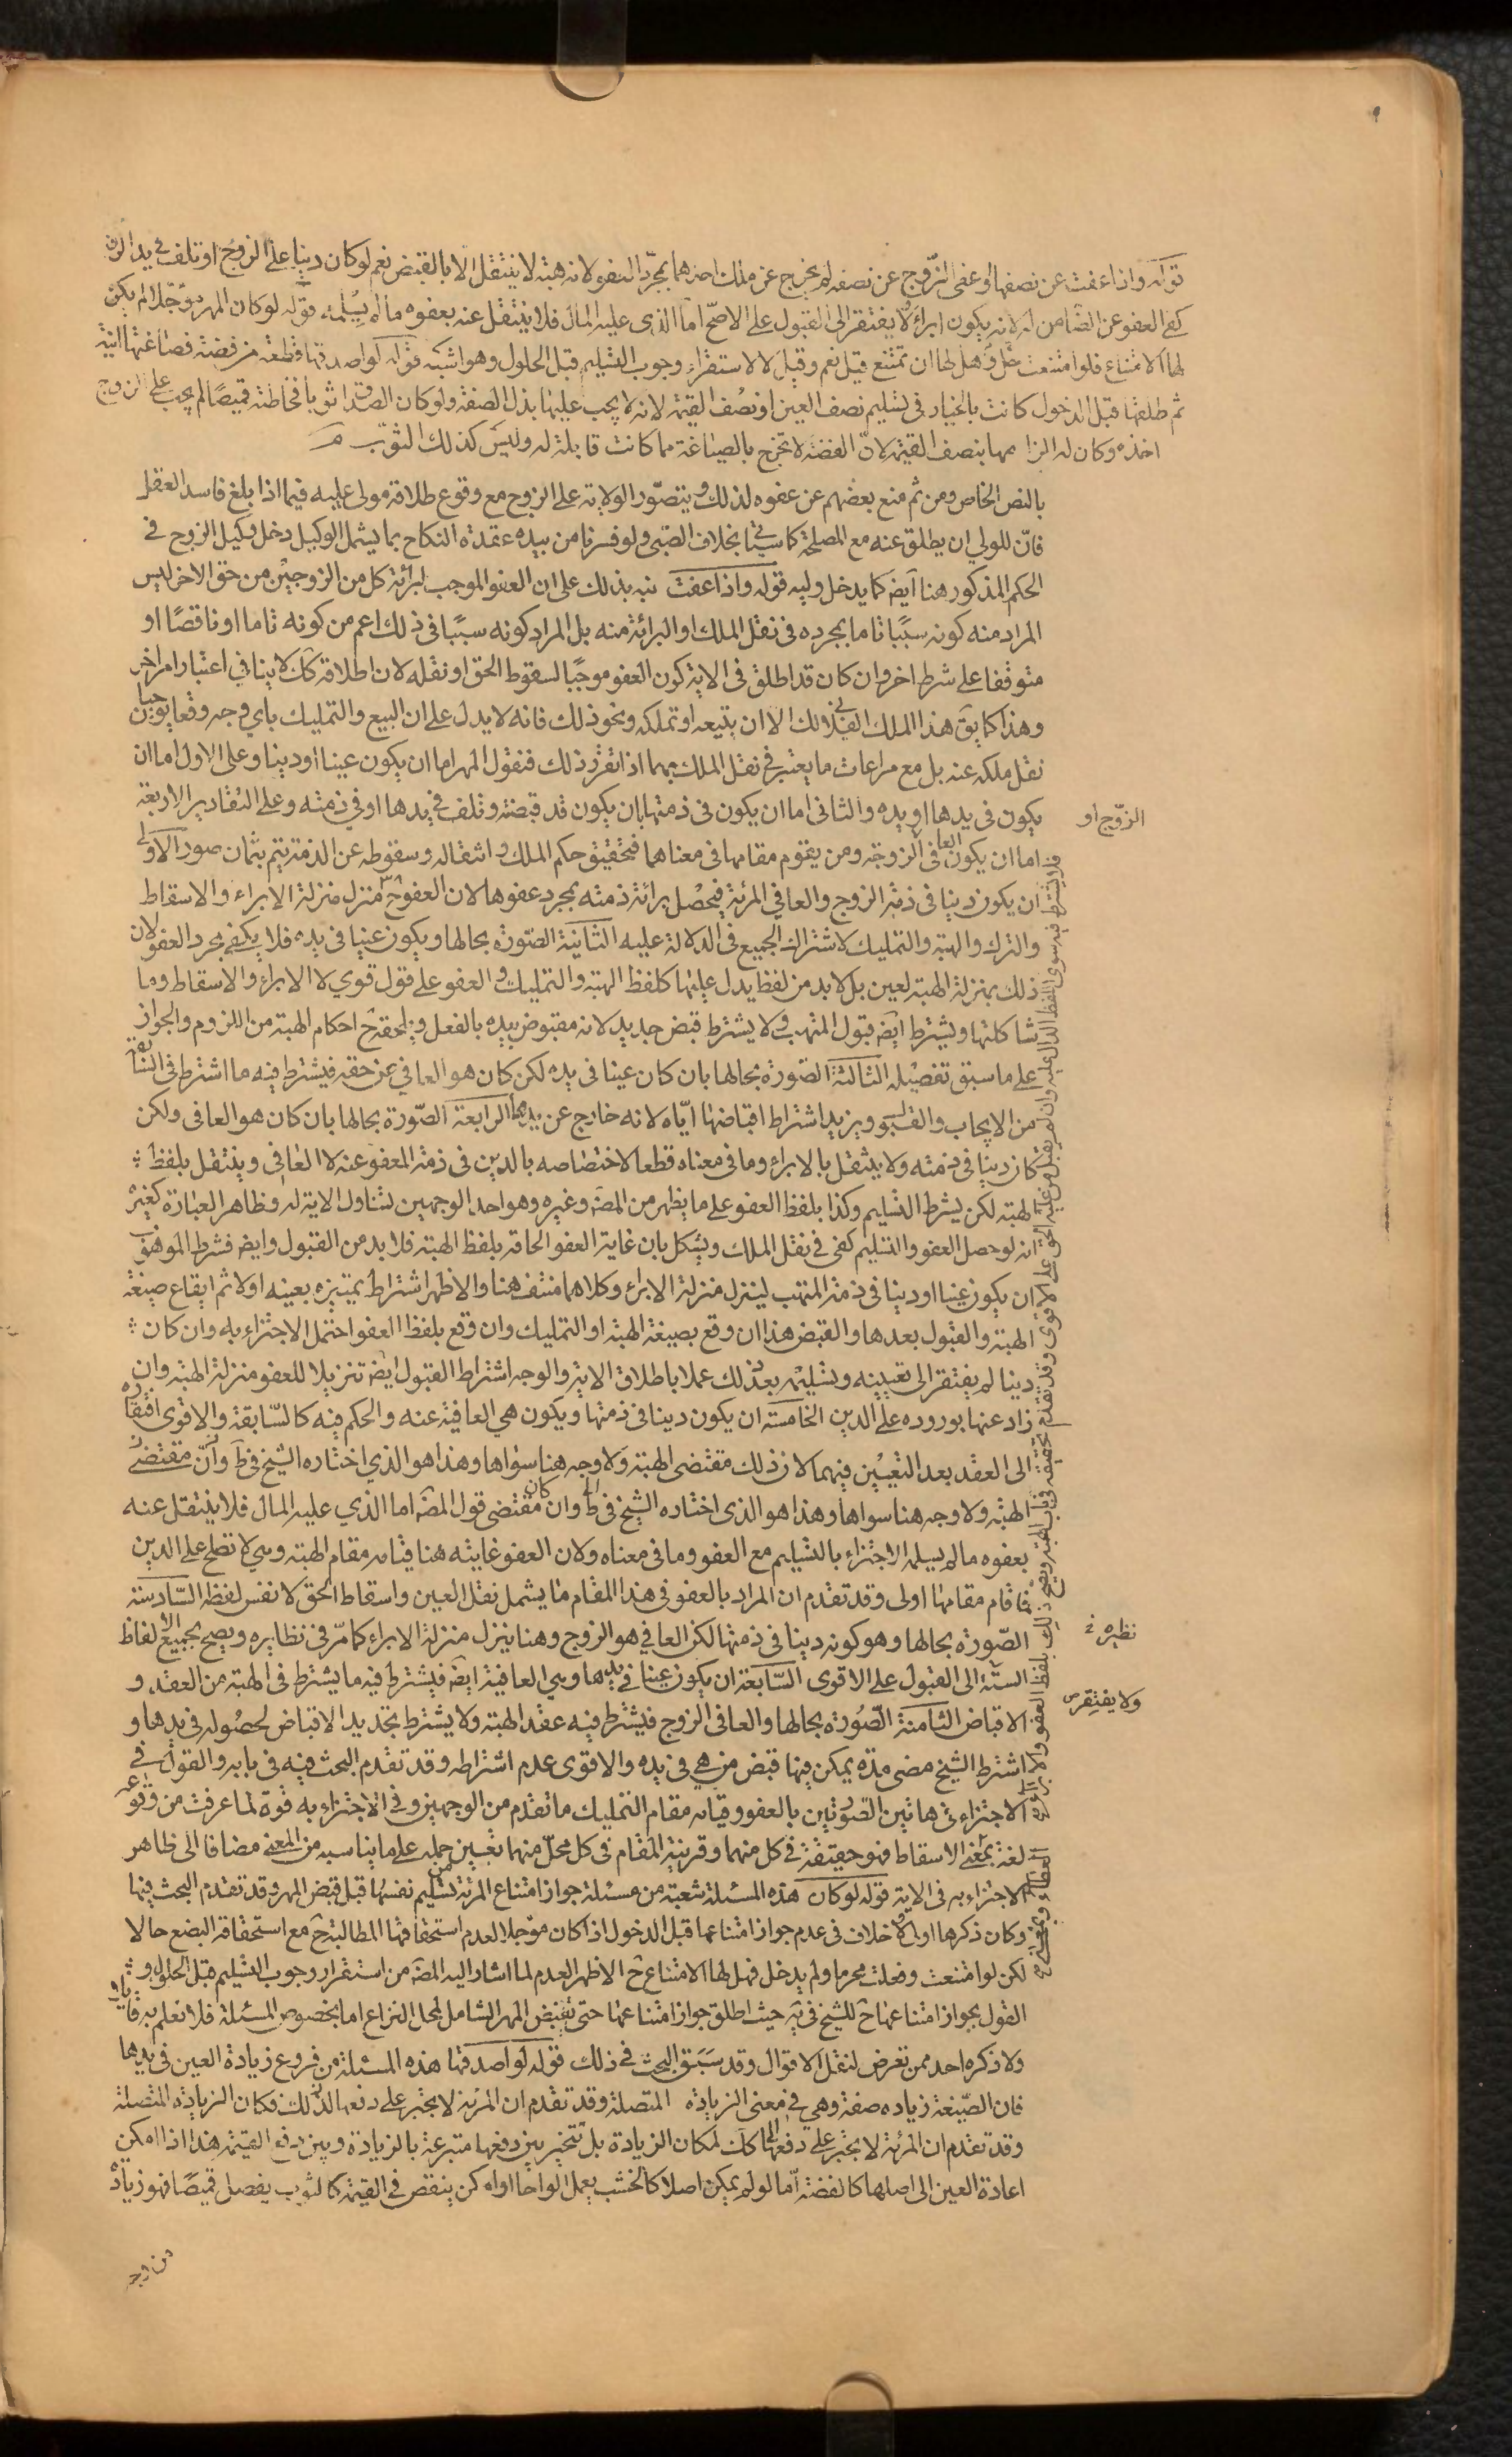 قوله واذا عفت عن نصفها او عفى الزّوج عن نصفه لم يخرج عن ملك احدهما بمجرّد العفو لانه هبة لا ينتقل الا بالقبض نعم لو كان دينا على الزوج او تلف في يد الزوج
كفى العفو عن الضامن له لانه يكون ابراءً ولا يفتقر الى القبول على الاصحّ امّا الذى عليه المال فلا ينتقل عنه بعفوه ما لم يسلمه قوله لو كان المهر مؤجّلا لم يكن
لها الامتناع فلو امتنعت وحلّ هل لها ان تمتنع قيل نعم وقيل لا لاستقرار وجوب التسليم قبل الحلول وهو اشبه قوله لو اصدقها قطعة من فضة فصاغتها آنية
ثم طلقها قبل الدخول كانت بالخيار فى تسليم نصف العين او نصف القيمة لانه لا يجب عليها بذل الصفة ولو كان الصداق ثوبا فخاطته قميصًا لم يجب على الزوج
اخذه وكان له الزامها بنصف القيمة لانّ الفضة لا تخرج بالصياغة عما كانت قابلة له وليس كذلك الثوب
بالنص الخاص ومن ثم منع بعضهم عن عفوه لذلك ويتصّور الولاية على الزوج مع وقوع طلاقه مولى عليه فيما اذا بلغ فاسد العقل
فانّ للولي ان يطلق عنه مع المصلحة كما سيأتى بخلاف الصّبى ولو فسرنا من بيده عقدة النكاح بما يشمل الوكيل دخل وكيل الزوج في
الحكم المذكور هنا ايضا كما يدخل وليه قوله واذا عفت نبه بذلك على ان العفو الموجب لبرائة كل من الزوجين من حق الاخر ليس
المراد منه كونه سببًا تاما بمجرده فى نقل الملك او البرائة منه بل المراد كونه سببًا فى ذلك اعم من كونه تاما او ناقصًا او
متوقفا على شرط اخر وان كان قد اطلق فى الاية كون العفو موجبًا لسقوط الحق او نقله لان اطلاقه كك لا ينافي اعتبار امر اخر
وهذا كما يق هذا الملك لفلان الا ان يبيعه او تملكه ونحو ذلك فانه لا يدل على ان البيع والتمليك باي وجه وقعا يوجبان
نقل ملكه عنه بل مع مراعات ما يعتبر فى نقل الملك بهما اذا تقرر ذلك فنقول المهر اما ان يكون عينا او دينا وعلى الاول اما ان
يكون فى يدها او يده والثانى اما ان يكون فى ذمتها بان يكون قد قبضته وتلف فى يدها او في ذمته وعلى التقادير الاربعة
اما ان يكون العافى الزوجة ومن يقوم مقامها فى معناهما فتحقيق حكم الملك وانتقاله وسقوطه عن الذمة يتم بثمان صور الاولى
ان يكون دينا فى ذمة الزوج والعافي المرئة فيحصل برائة ذمته بمجرد عفوها لان العفو ح منزل منزلة الابراء والاسقاط
والترك والهبة والتمليك لاشتراك الجميع فى الدلالة عليه الثانية الصّورة بحالها ويكون عينا فى يده فلا يكفى مجرد العفو لان
ذلك بمنزلة الهبة لعين بل لا بد من لفظ يدل عليها كلفظ الهبة والتمليك والعفو على قول قوي لا الابراء والاسقاط وما
شاكلتها ويشترط ايضا قبول المتهب ولا يشترط قبض جديد لانه مقبوض بيده بالفعل ويلحقه ح احكام الهبة من اللزوم والجواز
على ما سبق تفصيله الثالثة الصّورة بحالها بان كان عينا فى يده لكن كان هو العافي عن حقه فيشترط فيه ما اشترط فى السابقة
من الايجاب والقبول ويزيد اشتراط اقباضها ايّاه لانه خارج عن يدها الرابعة الصّورة بحالها بان كان هو العافى ولكن
كان دينا فى ذمته ولا ينتقل بالابراء وما فى معناه قطعا لاختصاصه بالدين فى ذمة المعفو عنه لا العافى وينتقل بلفظ
الهبة لكن يشترط التسليم وكذا بلفظ العفو على ما يظهر من المص وغيره وهو احد الوجهين لتناول الاية له وظاهر العبارة كغيره
انه لو حصل العفو والتسليم كفى فى نقل الملك ويشكل بان غاية العفو الحاقه بلفظ الهبة فلا بد من القبول وايضا فشرط الموهوب
ان يكون عينا او دينا فى ذمة المتهب لينزل منزلة الابراء وكلاهما منتف هنا والاظهر اشتراط تمييزه بعينه اولا ثم ايقاع صيغة
الهبة والقبول بعدها والقبض هذا ان وقع بصيغة الهبة او التمليك وان وقع بلفظ العفو احتمل الاجتزاء به وان كان
دينا لم يفتقر الى تعيينه وتسليمه بعد ذلك عملا باطلاق الاية والوجه اشتراط القبول ايضا تنزيلا للعفو منزلة الهبة وان
زاد عنها بوروده على الدين الخامسة ان يكون دينا فى ذمتها ويكون هي العافية عنه والحكم فيه كالسّابقة والاقوى افتقاره
الى العقد بعد التعيين فيهما لان ذلك مقتضى الهبة ولا وجه هنا سواها وهذا هو الذي اختاره الشيخ فى ط وانّ مقتضى
الهبة ولا وجه هنا سواها وهذا هو الذى اختاره الشيخ فى ط وان كان مقتضى قول المص اما الذي عليه المال فلا ينتقل عنه
بعفوه ما لم يسلمه الاجتزاء بالتسليم مع العفو وما فى معناه ولان العفو غايته هنا قيامه مقام الهبة وهي لا تصلح على الدين
فما قام مقامها اولى وقد تقدم ان المراد بالعفو فى هذا المقام ما يشمل نقل العين واسقاط الحق لا نفس لفظه السّادسة
الصّورة بحالها وهو كونه دينا فى ذمتها لكن العافي هو الزوج وهنا ينزل منزلة الابراء كما مرّ فى نظايره ويصح بجميع الالفاظ
الستّة الى القبول على الاقوى السّابعة ان يكون عينا فى يدها وهي العافية ايضا فيشترط فيه ما يشترط فى الهبة من العقد و
الاقباض الثامنة الصّورة بحالها والعافى الزوج فيشترط فيه عقد الهبة ولا يشترط تجديد الاقباض لحصوله فى يدها و
اشترط الشيخ مضى مدة يمكن فيها قبض من هي فى يده والاقوى عدم اشتراطه وقد تقدم البحث فيه فى بابه والقول في
الاجتزاء فى هاتين الصّورتين بالعفو وقيامه مقام التمليك ما تقدم من الوجهين وفى الاجتزاء به قوة لما عرفت من وقوعه
لغة بمعنى الاسقاط فهو حقيقة فى كل منهما وقرينة المقام فى كل محلّ منهما تعيين حمله على ما يناسبه من المعنى مضافا الى ظاهر
الاجتزاء به فى الاية قوله لو كان هذه المسئلة شعبة من مسئلة جواز امتناع المرئة من تسليم نفسها قبل قبض المهر وقد تقدم البحث فيها
وكان ذكرها اولى ولا خلاف فى عدم جواز امتناعها قبل الدخول اذا كان مؤجلا لعدم استحقاقها المطالبة ح مع استحقاقه البضع حالا
لكن لو امتنعت وفعلت محرما ولم يدخل فهل لها الامتناع ح الاظهر العدم لما اشار اليه المص من استقرار وجوب التسليم قبل الحلول و
القول بجواز امتناعها ح للشيخ فى يه حيث اطلق جواز امتناعها حتى تقبض المهر الشامل لمحل النزاع اما بخصوص المسئلة فلا نعلم به قايلا
ولا ذكره احد ممن تعرض لنقل الاقوال وقد سبق البحث فى ذلك قوله لو اصدقها هذه المسئلة من فروع زيادة العين فى يدها
فان الصّيغة زياده صفة وهي فى معنى الزيادة المتصلة وقد تقدم ان المرئة لا يجبر على دفعها لذلك فكان الزيادة المتصلة
وقد تقدم ان المرئة لا يجبر على دفعها كك لمكان الزيادة بل تتخير بين دفعها متبرعة بالزيادة وبين دفع القيمة هذا اذا امكن
اعادة العين الى اصلها كالفضة امّا لو لم يمكن اصلا كالخشب يعمل الواحا او امكن بنقص فى القيمة كالثوب يفصل قميصًا فهو زيادة
من وجه
الزّوج او
نظيره
ولا يفتقر